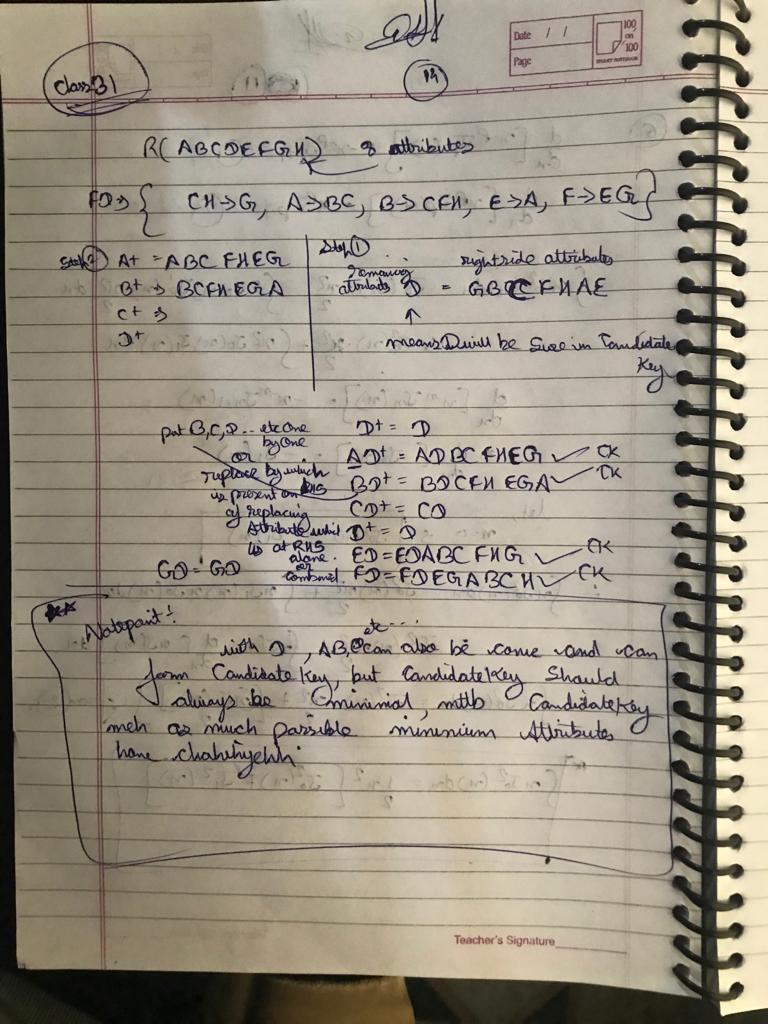 Date / /
Page
100 on 100
Class 31
R(ABCDEFGH) 8 attributes
FD→ { CH→G, A→BC, B→CFH, E→A, F→EG }
Step ② A+ = ABC FHEG
B+ → BCFHEGA
C+ →
D+
Step ①
remaining attributes D = GBCFHAE
rightside attributes
↑
means D will be Sure in Candidate
Key
put B,C,D.. etc one
by one
or
replace by which
is present on RHS
of replacing
Attribute which
is at RHS
alone
or
combined.
D+ = D
AD+ = ADBCFHEG ✓ CK
BD+ = BDCFHEGA ✓ CK
CD+ = CD
D+ = D
ED = EDABCFHG ✓ CK
FD = FDEGABCH ✓ CK
GD = GD
Notepoint :
with D, AB, etc... can also be come and can
form Candidate Key, but Candidate Key Should
always be minimal, mtlb Candidate Key
meh as much possible minimium Attributes
hone chahihyehh
Teacher's Signature